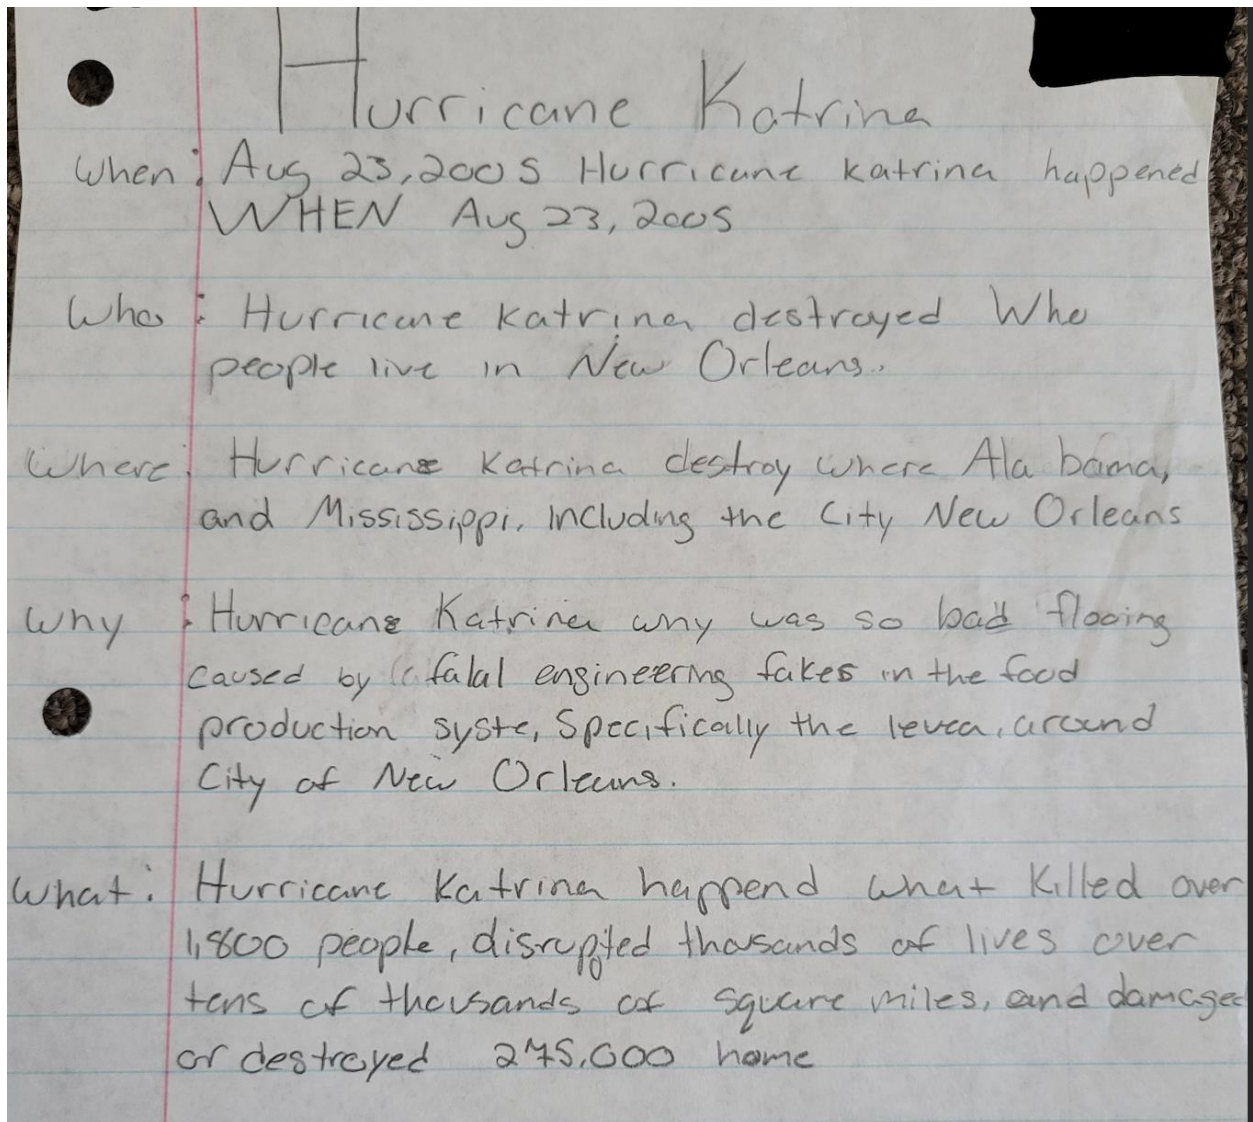 Hurricane Katrina
When: Aug 23, 2005 Hurricane Katrina happened
WHEN Aug 23, 2005
Who: Hurricane Katrina destroyed Who
people live in New Orleans.
Where: Hurricane Katrina destroy where Ala bama,
and Mississippi, Including the City New Orleans
Why: Hurricane Katrina why was so bad flooing
caused by falal engineering fakes in the food
production syste, Specifically the levea, around
City of New Orleans.
What: Hurricane Katrina happend what Killed over
1,800 people, disrupted thousands of lives over
tens of thousands of square miles, and damaged
or destroyed 275,000 home